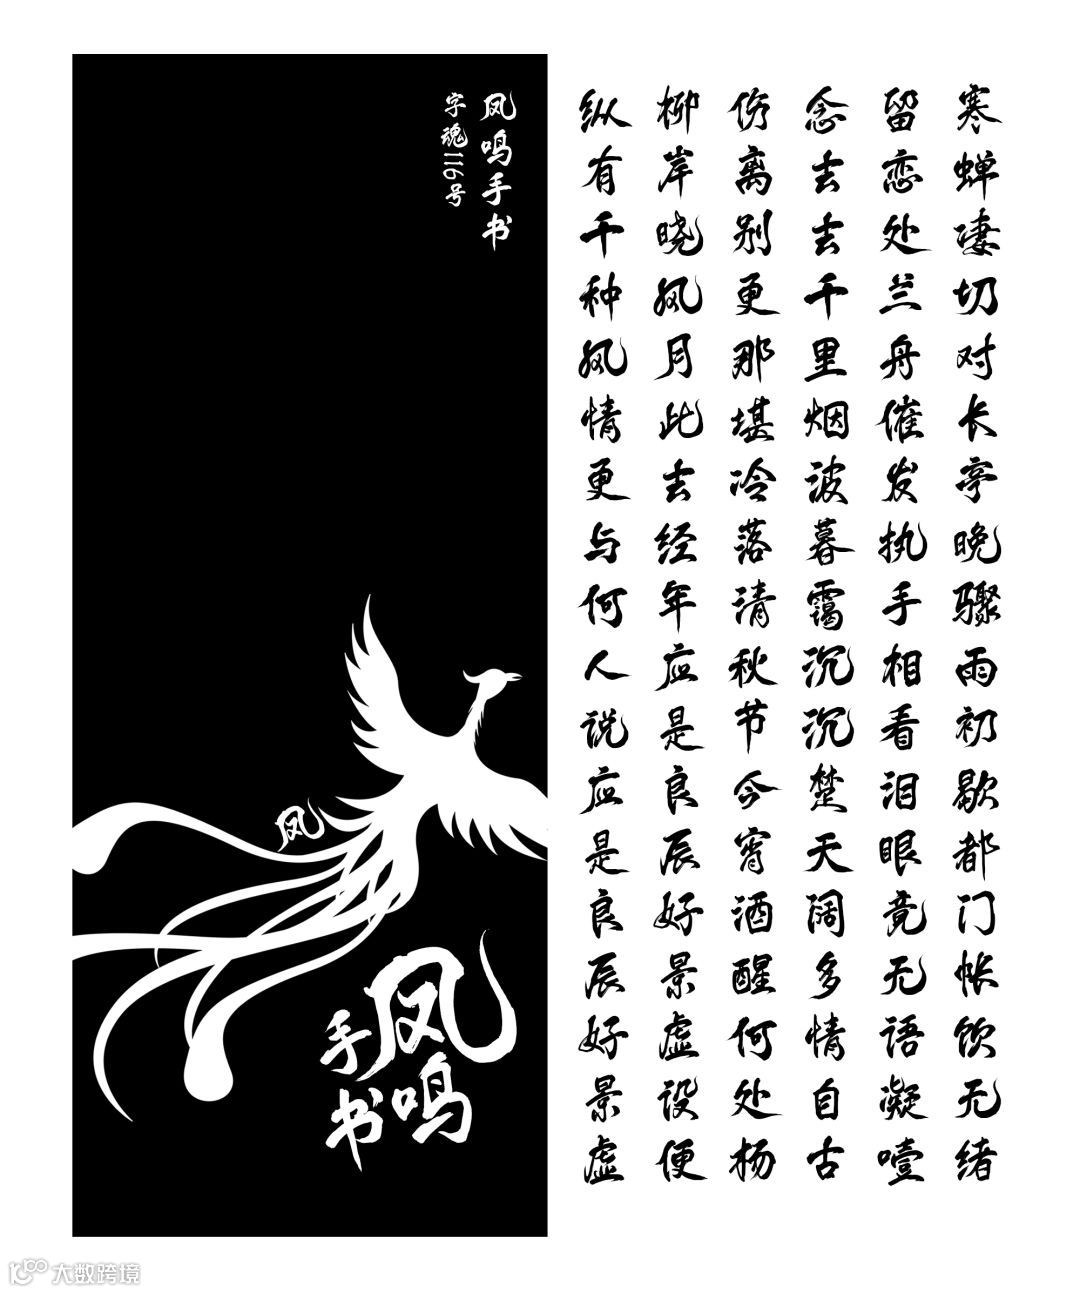 寒蝉凄切对长亭晚骤雨初歇都门帐饮无绪
留恋处兰舟催发执手相看泪眼竟无语凝噎
念去去千里烟波暮霭沉沉楚天阔多情自古
伤离别更那堪冷落清秋节今宵酒醒何处杨
柳岸晓风月此去经年应是良辰好景虚设便
纵有千种风情更与何人说应是良辰好景虚
凤鸣手书
字魂116号
凤
凤鸣
手书
大数跨境